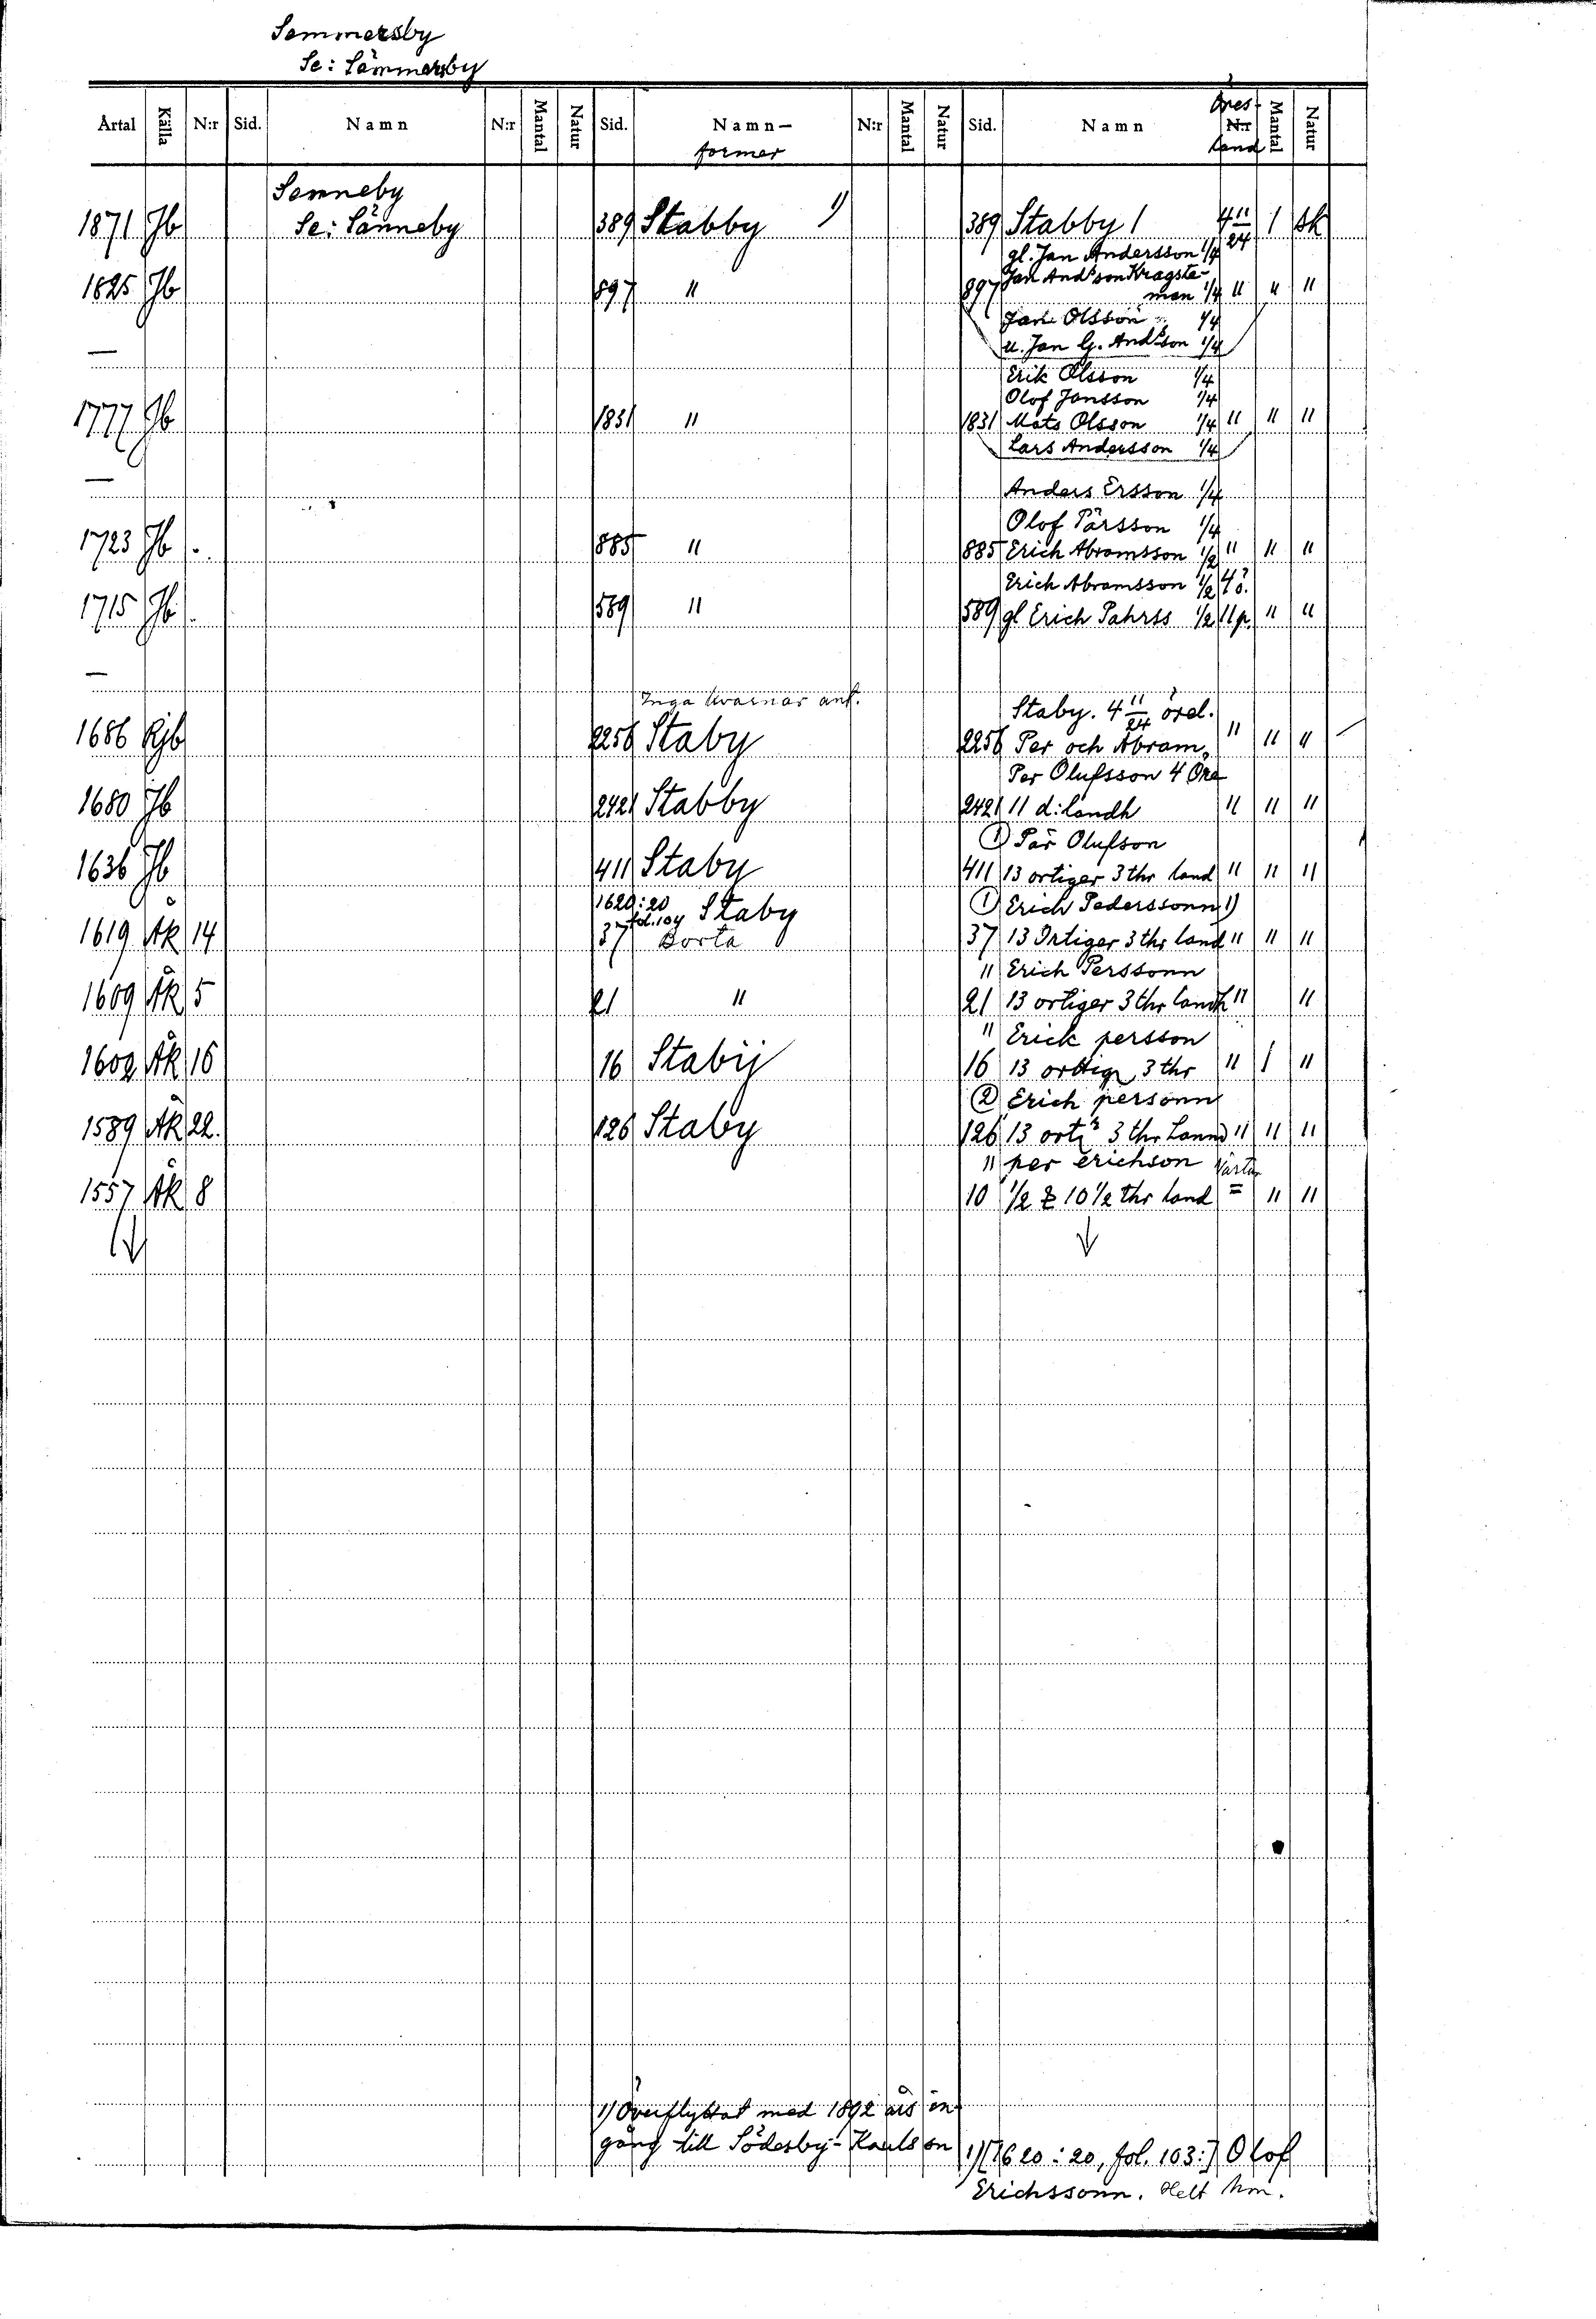 Semmersby
Se: Sämmersby
Årtal Källa N:r Sid. Namn N:r Mantal Natur Sid. Namn- former N:r Mantal Natur Sid. Namn Öres- N:r land Mantal Natur
Senneby
1871 Jb Se: Sänneby 389 Stabby 1) 389 Stabby 1 4 11/24 1 sk
gl. Jan Andersson 1/4
Jan And:son Kragste-
1825 Jb 897 " 897 man 1/4 " " "
Jan Olsson 1/4
u. Jan G. And:son 1/4
—
Erik Olsson 1/4
Olof Jansson 1/4
1777 Jb 1831 " 1831 Mats Olsson 1/4 " " "
Lars Andersson 1/4
—
Anders Ersson 1/4
Olof Pärsson 1/4
1723 Jb 885 " 885 Erich Abramsson 1/2 " " "
Erich Abramsson 1/2 4 ö.
1715 Jb 589 " 589 gl Erich Pahrss 1/2 11 p. " "
—
Inga kvarnar ant. Staby. 4 11/24 örel.
1686 Rjb 2256 Staby 2256 Per och Abram " " "
Per Olufsson 4 Öre
1680 Jb 2421 Stabby 2421 11 d:landh " " "
① Pär Olufson
1636 Jb 411 Staby 411 13 ortiger 3 thr land " " "
1620:20 fol. 104 Staby ① Erich Pederssonn 1)
1619 Åk 14 37 Borta 37 13 Örtiger 3 thr land " " "
" Erich Perssonn
1609 Åk 5 21 " 21 13 ortiger 3 thr landh " "
" Erick persson
1602 Åk 16 16 Stabij 16 13 orttigr 3 thr " 1 "
② Erich personn
1589 Åk 22. 126 Staby 126 13 ortr 3 thr Lannd " " "
" per erichson
1557 Åk 8 10 1/2 10 1/2 thr land = " "
1) Överflyttat med 1892 års in-
gång till Södesby-Karlson
1) [1620:20, fol. 103:] Olof
Erichssonn. Helt hm.